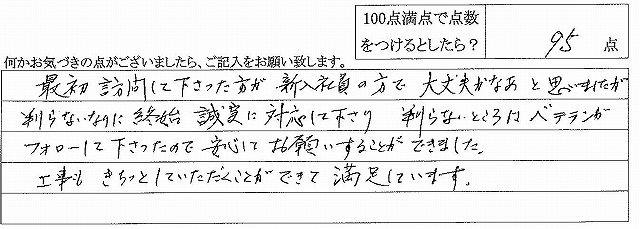 100点満点で点数
をつけるとしたら？ 95 点
何かお気づきの点がございましたら、ご記入をお願い致します。
最初 訪問して下さった方が 新入社員の方で 大丈夫かなあ と思いましたが
判らないなりに 終始 誠実に 対応して下さり 判らないところは ベテランが
フォローして下さったので 安心して お願いすることができました。
工事も きちっとしていただくことができて 満足しています。